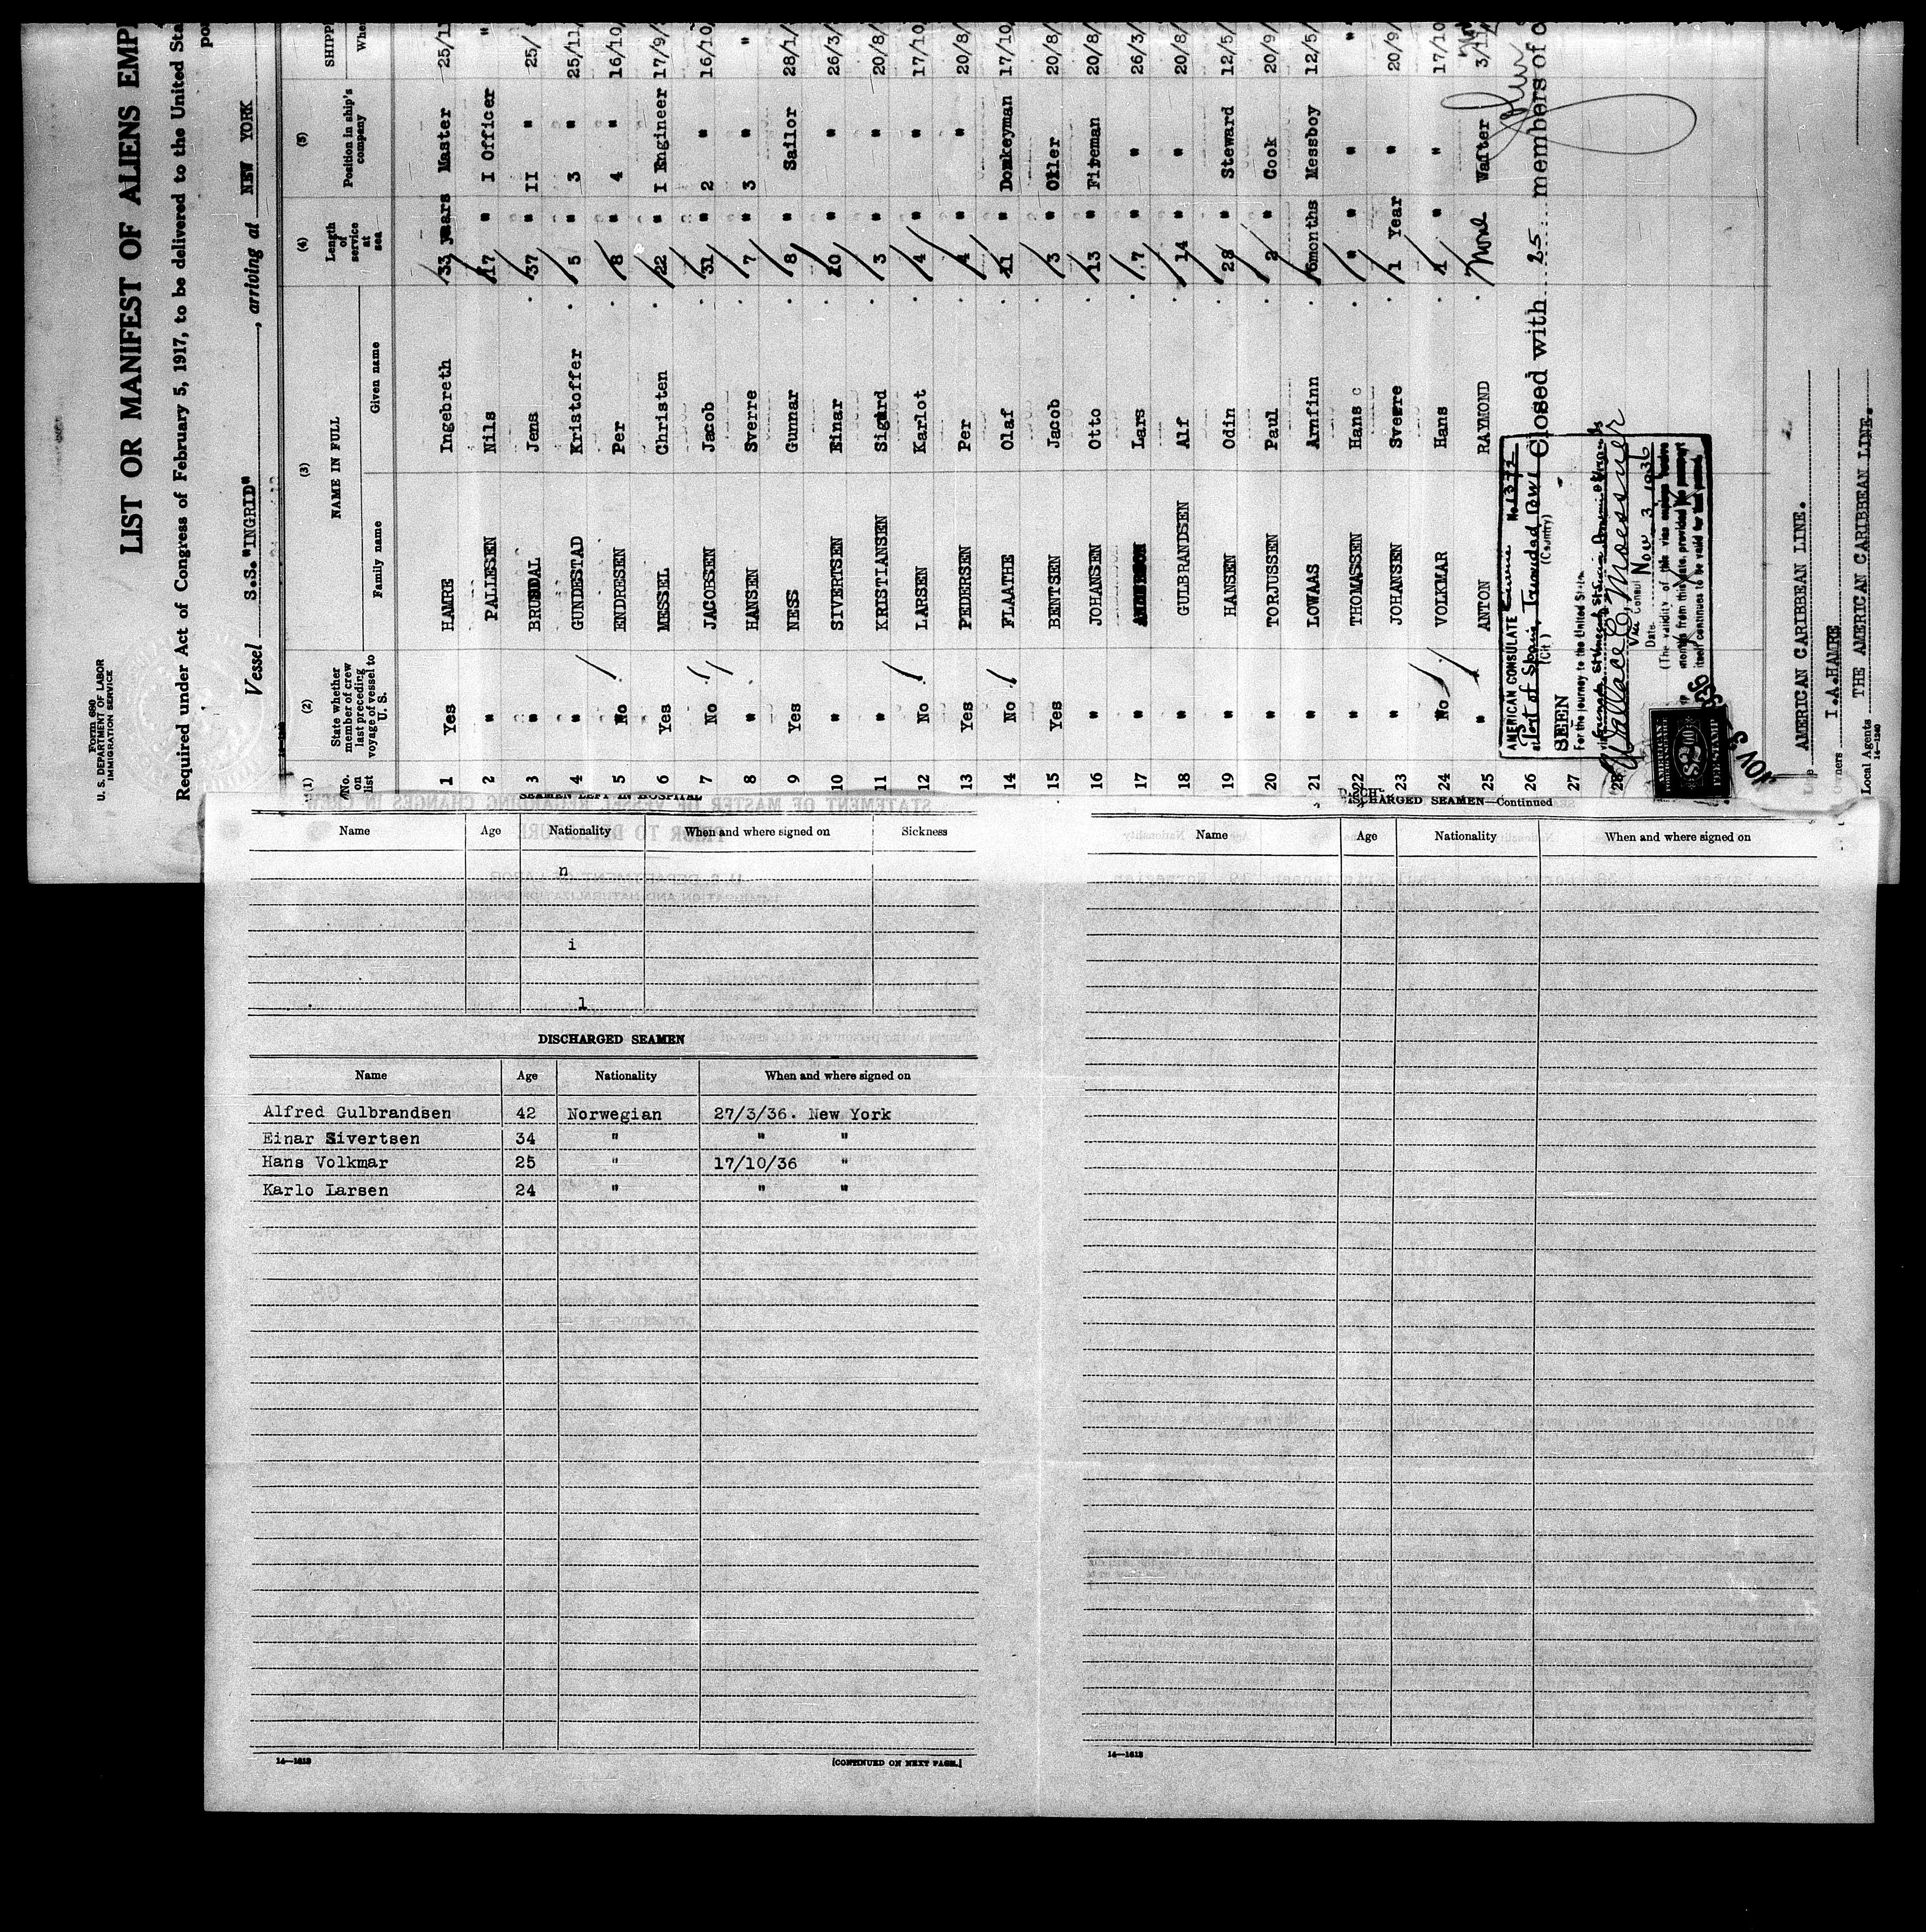 Form 680
U. S. DEPARTMENT OF LABOR
IMMIGRATION SERVICE
LIST OR MANIFEST OF ALIENS EMP
Required under Act of Congress of February 5, 1917, to be delivered to the United Sta
Vessel S.S."INGRID", arriving at NEW YORK
(1) (2) (3) (4) (5)
No. on list State whether member of crew last preceding voyage of vessel to U. S. NAME IN FULL Family name Given name Length of service at sea Position in ship's company SHIPP Whe
1 Yes HAMRE Ingebreth 33 years Master 25/11
2 " PALLESEN Nils 17 " I Officer "
3 " BRUSDAL Jens 37 " II " 25/
4 " GUNDESTAD Kristoffer 5 " 3 " 25/11
5 No ENDRESEN Per 8 " 4 " 16/10
6 Yes MESSEL Christen 22 " I Engineer 17/9/
7 No JACOBSEN Jacob 31 " 2 " 16/10
8 " HANSEN Sverre 7 " 3 " "
9 Yes NESS Gunnar 8 " Sailor 28/1/
10 " SIVERTSEN Einar 10 " " 26/3/
11 " KRISTIANSEN Sigurd 3 " " 20/8/
12 No LARSEN Karlot 4 " " 17/10
13 Yes PEDERSEN Per 4 " " 20/8/
14 No FLAATHE Olaf 11 " Donkeyman 17/10
15 Yes BENTSEN Jacob 3 " Oiler 20/8/
16 " JOHANSEN Otto 13 " Fireman 20/8/
17 " Lars 7 " " 26/3/
18 " GULBRANDSEN Alf 14 " " 20/8/
19 " HANSEN Odin 28 " Steward 12/5/
20 " TORJUSSEN Paul 2 " Cook 20/9/
21 " LOWAAS Arnfinn 6months Messboy 12/5/
22 " THOMASSEN Hans " " " "
23 " JOHANSEN Sverre 1 Year " 20/9/
24 No VOLKMAR Hans 1 " " 17/10
25 " ANTON RAYMOND None Waiter 3/11/
26 Closed with 25 members of c
27
28
AMERICAN CONSULATE No. 1372
at Port of Spain, Trinidad B.W.I.
(City) (Country)
SEEN
For the journey to the United States
Wallace E. Moessner
Vice Consul
Date Nov 3 1936
(The validity of this visa expires twelve
months from this date, provided the passport
itself continues to be valid for that period.)
AMERICAN
$2.00
NOV 3 1936
AMERICAN CARIBBEAN LINE.
Owners I.A.HAMRE
Local Agents THE AMERICAN CARIBBEAN LINE.
14—1240
SEAMEN LEFT IN HOSPITAL
Name Age Nationality When and where signed on Sickness
n
i
l
DISCHARGED SEAMEN
Name Age Nationality When and where signed on
Alfred Gulbrandsen 42 Norwegian 27/3/36. New York
Einar Sivertsen 34 " " "
Hans Volkmar 25 " 17/10/36 "
Karlo Larsen 24 " " "
14—1613
[CONTINUED ON NEXT PAGE.]
DISCHARGED SEAMEN—Continued
Name Age Nationality When and where signed on
14—1613